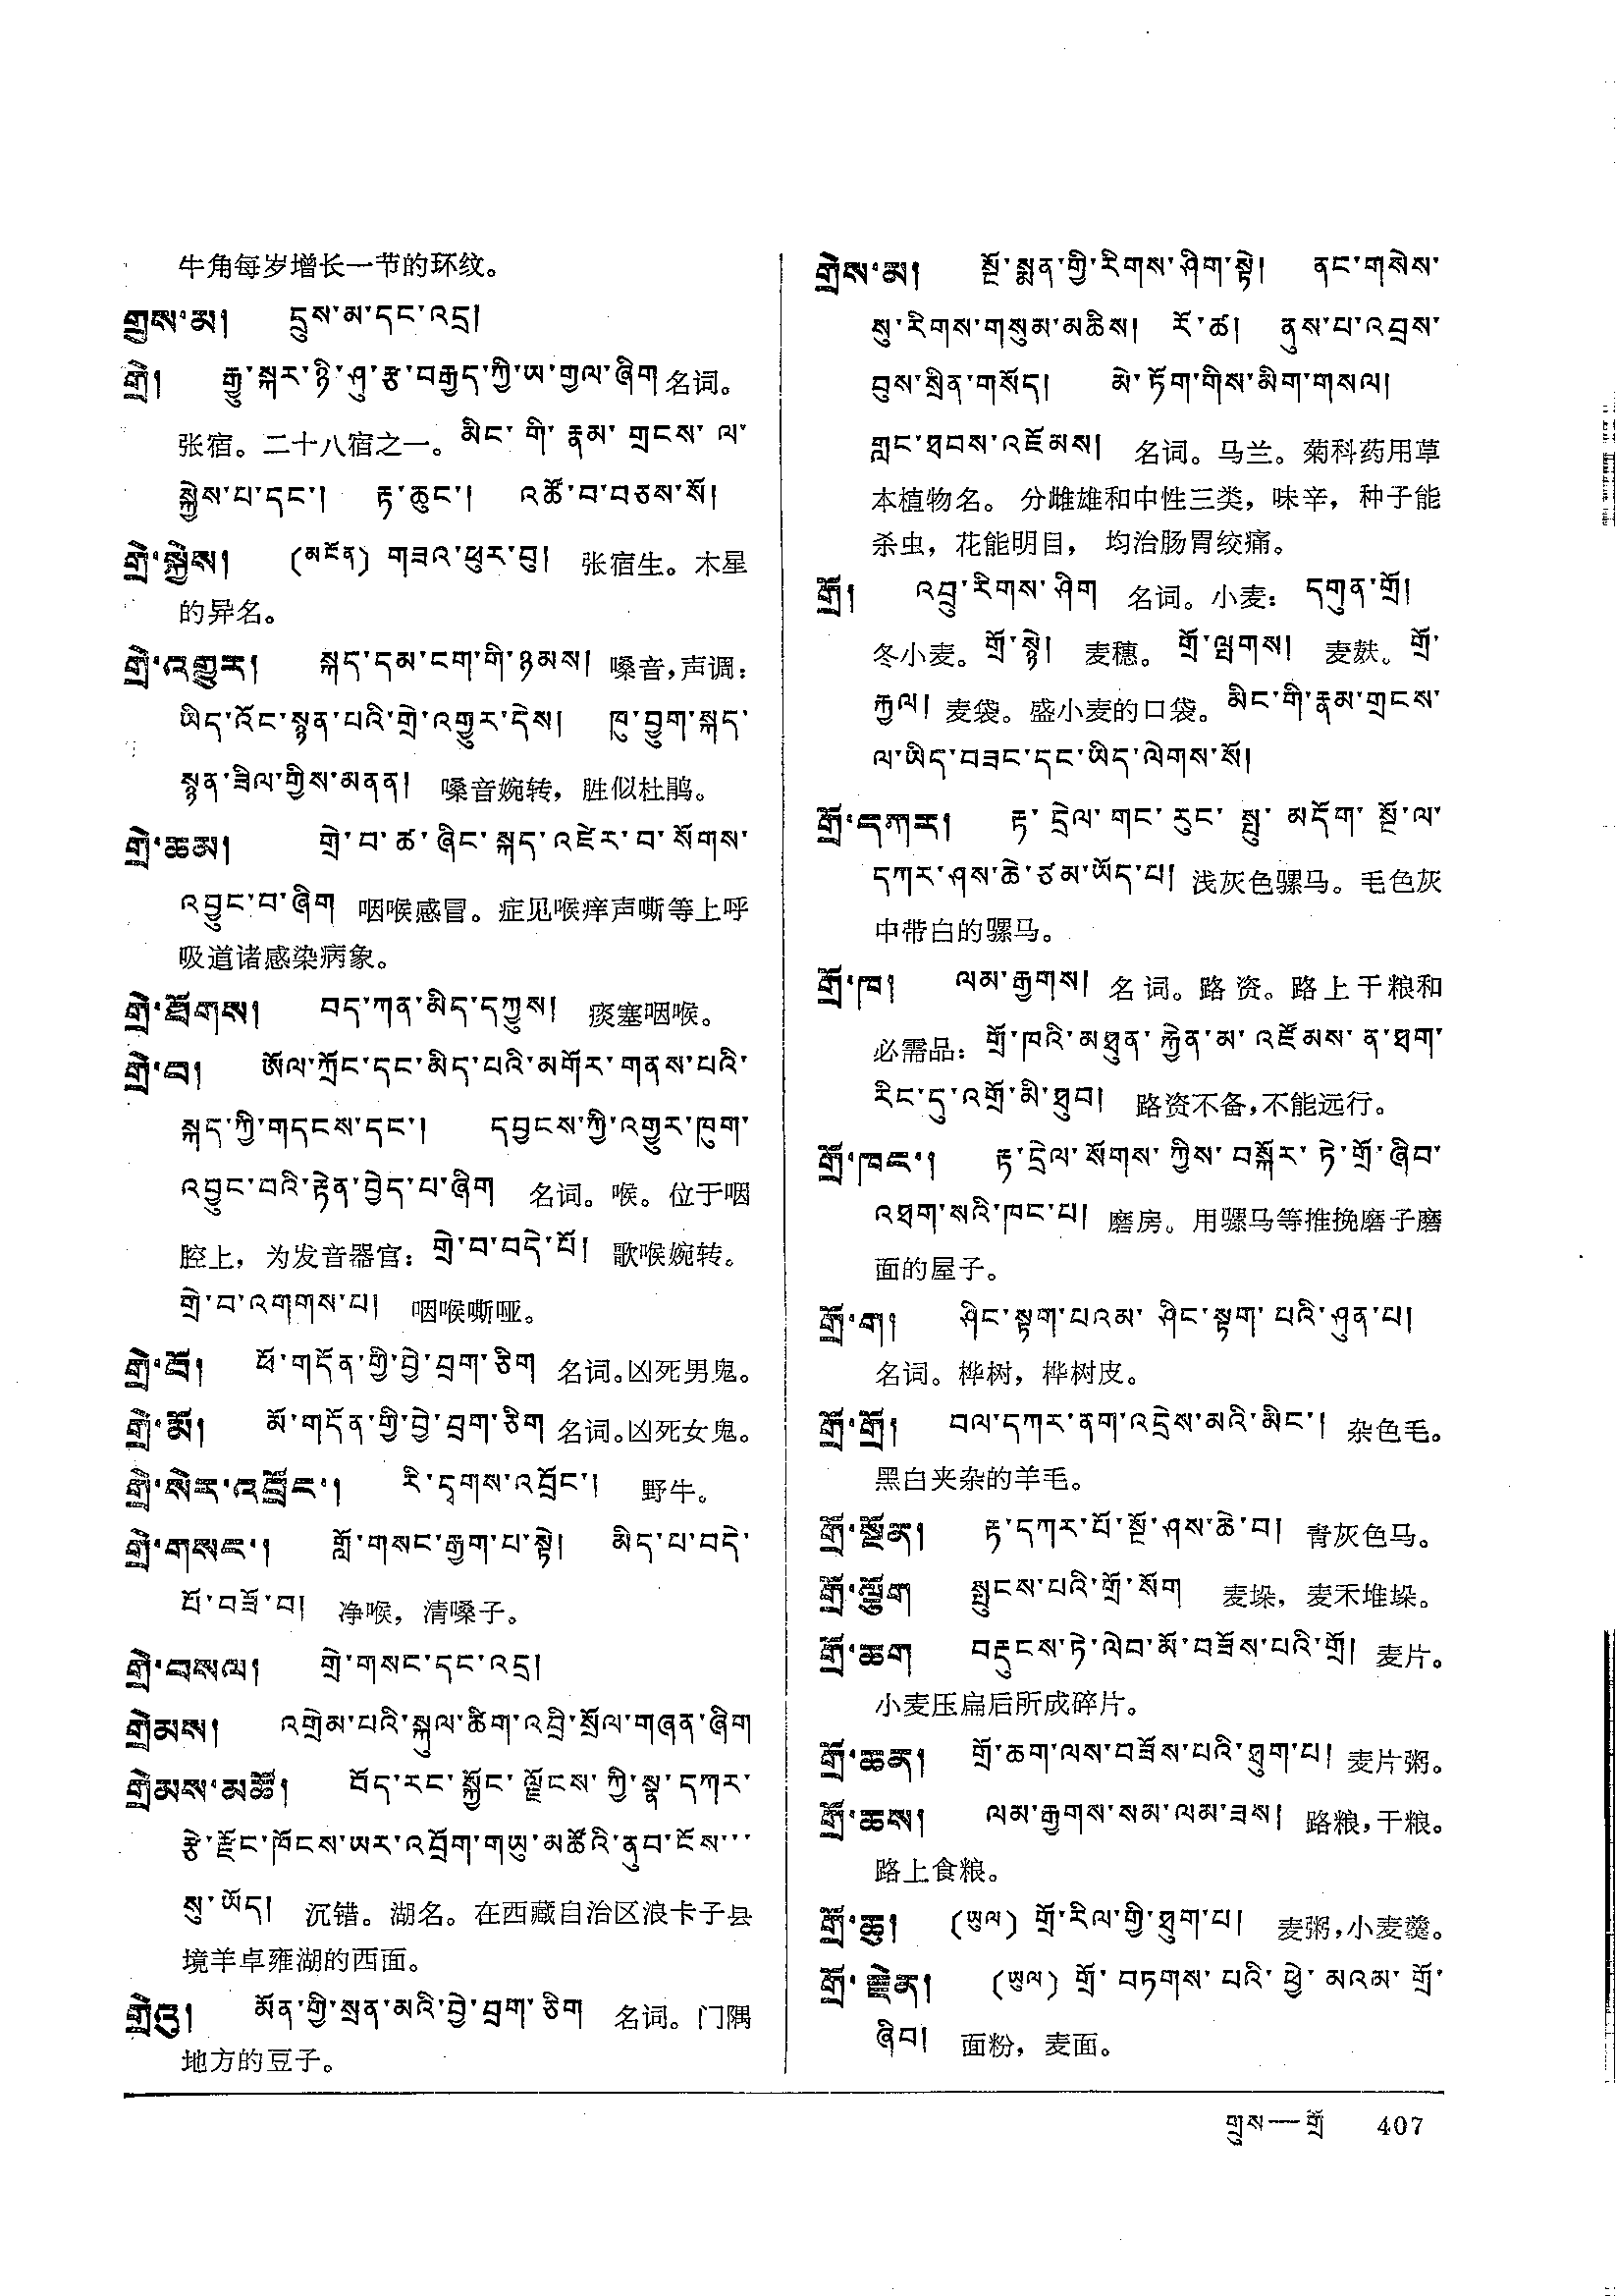 牛角每岁增长一节的环纹。
གྲུས་མ། དྲུས་མ་དང་འདྲ།
གྲེ། རྒྱུ་སྐར་ཉི་ཤུ་རྩ་བརྒྱད་ཀྱི་ཡ་གྱལ་ཞིག 名词。
张宿。二十八宿之一。མིང་གི་རྣམ་གྲངས་ལ་
སྐྱེས་པ་དང་། རྟ་ཆུང་། འཚོ་བ་བཅས་སོ།
གྲེ་སྐྱེས། (མངོན) གཟའ་ཕུར་བུ། 张宿生。木星
的异名。
གྲེ་འགྱུར། སྐད་དམ་ངག་གི་ཉམས། 嗓音，声调：
ཡིད་འོང་སྙན་པའི་གྲེ་འགྱུར་དེས། ཁུ་བྱུག་སྐད་
སྙན་ཟིལ་གྱིས་མནན། 嗓音婉转，胜似杜鹃。
གྲེ་ཆམ། གྲེ་བ་ཚ་ཞིང་སྐད་འཛེར་བ་སོགས་
འབྱུང་བ་ཞིག 咽喉感冒。症见喉痒声嘶等上呼
吸道诸感染病象。
གྲེ་ཐོགས། བད་ཀན་མིད་དཀྱུས། 痰塞咽喉。
གྲེ་བ། ཨོལ་ཀྲོང་དང་མིད་པའི་མགོར་གནས་པའི་
སྐད་ཀྱི་གདངས་དང་། དབྱངས་ཀྱི་འགྱུར་ཁུག་
འབྱུང་བའི་རྟེན་བྱེད་པ་ཞིག 名词。喉。位于咽
腔上，为发音器官：གྲེ་བ་བདེ་པོ། 歌喉婉转。
གྲེ་བ་འགགས་པ། 咽喉嘶哑。
གྲེ་བོ། ཕོ་གདོན་གྱི་བྱེ་བྲག་ཅིག 名词。凶死男鬼。
གྲེ་མོ། མོ་གདོན་གྱི་བྱེ་བྲག་ཅིག 名词。凶死女鬼。
གྲེ་སེར་འབྲོང་། རི་དྭགས་འབྲོང་། 野牛。
གྲེ་གསང་། གློ་གསང་རྒྱག་པ་སྟེ། མིད་པ་བདེ་
པོ་བཟོ་བ། 净喉，清嗓子。
གྲེ་བསལ། གྲེ་གསང་དང་འདྲ།
གྲེམས། འགྲེམ་པའི་སྐུལ་ཚིག་འབྲི་སྲོལ་གཞན་ཞིག
གྲེམས་མཚོ། བོད་རང་སྐྱོང་ལྗོངས་ཀྱི་སྣ་དཀར་
རྩེ་རྫོང་ཁོངས་ཡར་འབྲོག་གཡུ་མཚོའི་ནུབ་ངོས་…
སུ་ཡོད། 沉错。湖名。在西藏自治区浪卡子县
境羊卓雍湖的西面。
གྲེའུ། མོན་གྱི་སྲན་མའི་བྱེ་བྲག་ཅིག 名词。门隅
地方的豆子。
གྲེས་མ། སྔོ་སྨན་གྱི་རིགས་ཤིག་སྟེ། ནང་གསེས་
སུ་རིགས་གསུམ་མཆིས། རོ་ཚ། ནུས་པ་འབྲས་
བུས་སྲིན་གསོད། མེ་ཏོག་གིས་མིག་གསལ།
གླང་ཐབས་འཇོམས། 名词。马兰。菊科药用草
本植物名。分雌雄和中性三类，味辛，种子能
杀虫，花能明目，均治肠胃绞痛。
གྲོ། འབྲུ་རིགས་ཤིག 名词。小麦：དགུན་གྲོ།
冬小麦。གྲོ་སྙེ། 麦穗。གྲོ་ལྤགས། 麦麸。གྲོ་
རྐྱལ། 麦袋。盛小麦的口袋。མིང་གི་རྣམ་གྲངས་
ལ་ཡིད་བཟང་དང་ཡིད་ལེགས་སོ།
གྲོ་དཀར། རྟ་དྲེལ་གང་རུང་སྤུ་མདོག་སྔོ་ལ་
དཀར་ཤས་ཆེ་ཙམ་ཡོད་པ། 浅灰色骡马。毛色灰
中带白的骡马。
གྲོ་ཁ། ལམ་རྒྱགས། 名词。路资。路上干粮和
必需品：གྲོ་ཁའི་མཐུན་རྐྱེན་མ་འཛོམས་ན་ཐག་
རིང་དུ་འགྲོ་མི་ཐུབ། 路资不备，不能远行。
གྲོ་ཁང་། རྟ་དྲེལ་སོགས་ཀྱིས་བསྐོར་ཏེ་གྲོ་ཞིབ་
འཐག་སའི་ཁང་པ། 磨房。用骡马等推挽磨子磨
面的屋子。
གྲོ་ག། ཤིང་སྟག་པའམ་ཤིང་སྟག་པའི་ཤུན་པ།
名词。桦树，桦树皮。
གྲོ་གྲོ། བལ་དཀར་ནག་འདྲེས་མའི་མིང་། 杂色毛。
黑白夹杂的羊毛。
གྲོ་སྔོན། རྟ་དཀར་པོ་སྔོ་ཤས་ཆེ་བ། 青灰色马。
གྲོ་ལྕོག སྤུངས་པའི་གྲོ་སོག 麦垛，麦禾堆垛。
གྲོ་ཆག བརྡུངས་ཏེ་ལེབ་མོ་བཟོས་པའི་གྲོ། 麦片。
小麦压扁后所成碎片。
གྲོ་ཆན། གྲོ་ཆག་ལས་བཟོས་པའི་ཐུག་པ། 麦片粥。
གྲོ་ཆས། ལམ་རྒྱགས་སམ་ལམ་ཟས། 路粮，干粮。
路上食粮。
གྲོ་ཆུ། (ཡུལ) གྲོ་རིལ་གྱི་ཐུག་པ། 麦粥，小麦羹。
གྲོ་རྗེན། (ཡུལ) གྲོ་བཏགས་པའི་ཕྱེ་མའམ་གྲོ་
ཞིབ། 面粉，麦面。
གྲུས—གྲོ 407